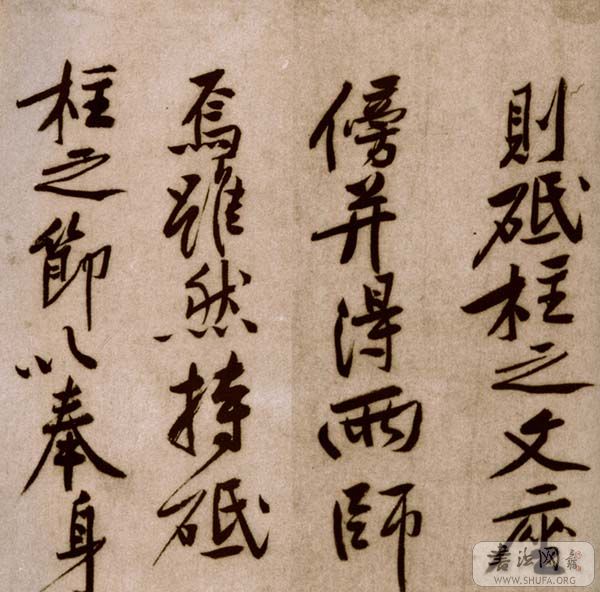 則砥柱之文座
傍并得兩師
焉雖然持砥
柱之節以奉身
書法网
WWW.SHUFA.ORG